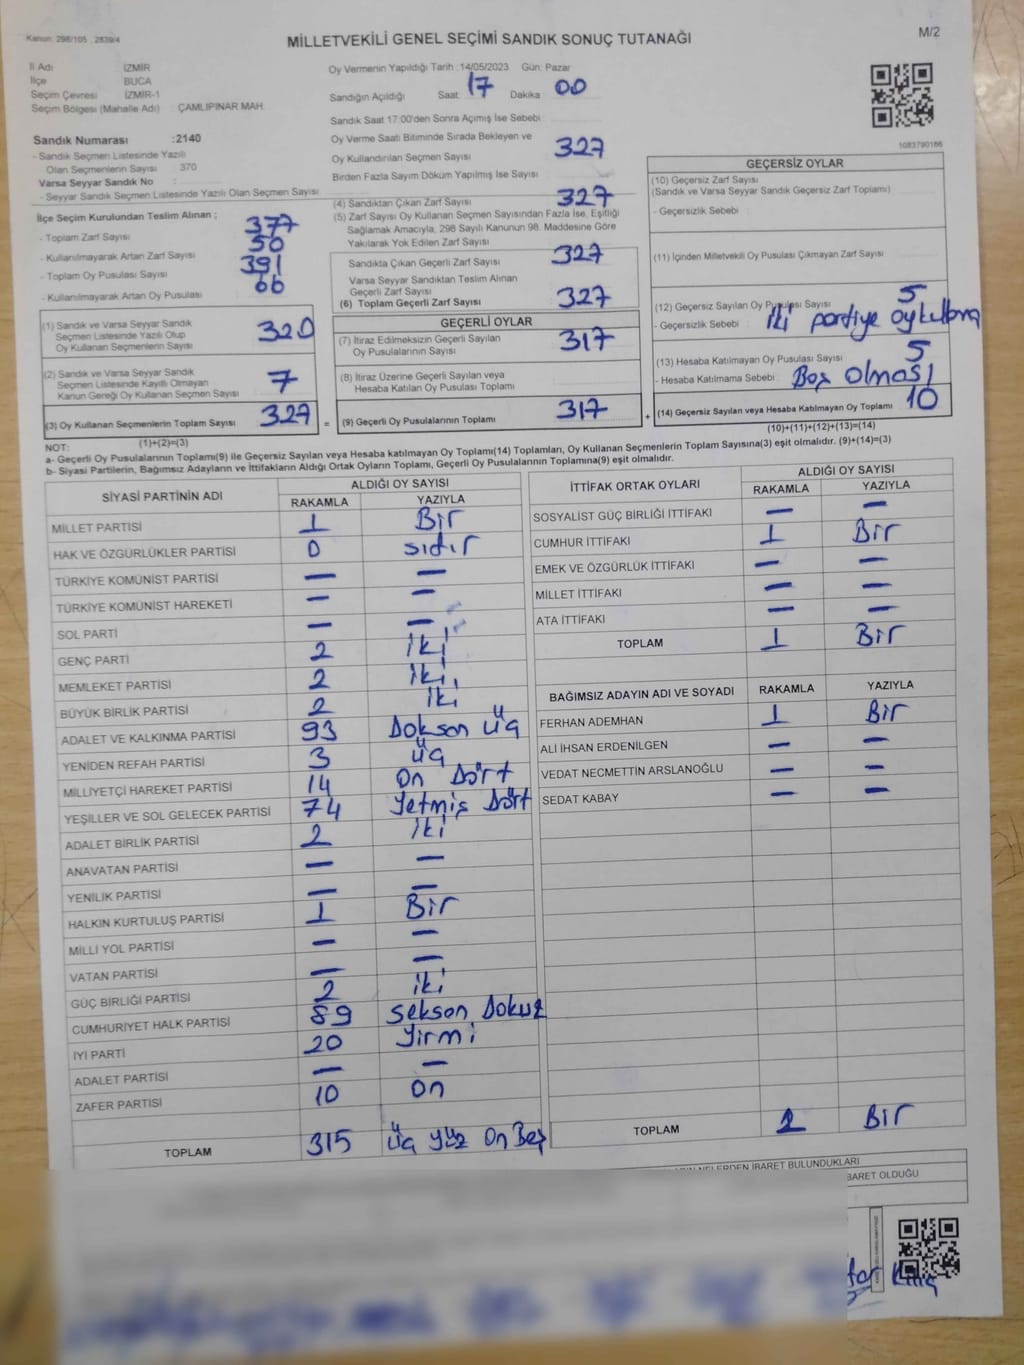 Kanun: 298/105 , 2839/4
MİLLETVEKİLİ GENEL SEÇİMİ SANDIK SONUÇ TUTANAĞI
M/2
İl Adı İZMİR
İlçe BUCA
Seçim Çevresi İZMİR-1
Seçim Bölgesi (Mahalle Adı) ÇAMLIPINAR MAH.
Sandık Numarası :2140
- Sandık Seçmen Listesinde Yazılı
Olan Seçmenlerin Sayısı 370
Varsa Seyyar Sandık No :
- Seyyar Sandık Seçmen Listesinde Yazılı Olan Seçmen Sayısı
İlçe Seçim Kurulundan Teslim Alınan ;
- Toplam Zarf Sayısı 377
- Kullanılmayarak Artan Zarf Sayısı 50
- Toplam Oy Pusulası Sayısı 391
- Kullanılmayarak Artan Oy Pusulası 66
(1) Sandık ve Varsa Seyyar Sandık
Seçmen Listesinde Yazılı Olup
Oy Kullanan Seçmenlerin Sayısı 320
(2) Sandık ve Varsa Seyyar Sandık
Seçmen Listesinde Kayıtlı Olmayan
Kanun Gereği Oy Kullanan Seçmen Sayısı 7
(3) Oy Kullanan Seçmenlerin Toplam Sayısı 327
(1)+(2)=(3)
Oy Vermenin Yapıldığı Tarih :14/05/2023 Gün: Pazar
Sandığın Açıldığı Saat: 17 Dakika 00
Sandık Saat 17:00'den Sonra Açımış İse Sebebi:
Oy Verme Saati Bitiminde Sırada Bekleyen ve
Oy Kullandırılan Seçmen Sayısı 327
Birden Fazla Sayım Döküm Yapılmış İse Sayısı
(4) Sandıktan Çıkan Zarf Sayısı 327
(5) Zarf Sayısı Oy Kullanan Seçmen Sayısından Fazla İse, Eşitliği
Sağlamak Amacıyla, 298 Sayılı Kanunun 98. Maddesine Göre
Yakılarak Yok Edilen Zarf Sayısı
Sandıkta Çıkan Geçerli Zarf Sayısı 327
Varsa Seyyar Sandıktan Teslim Alınan
Geçerli Zarf Sayısı
(6) Toplam Geçerli Zarf Sayısı 327
GEÇERLİ OYLAR
(7) İtiraz Edilmeksizin Geçerli Sayılan
Oy Pusulalarının Sayısı 317
(8) İtiraz Üzerine Geçerli Sayılan veya
Hesaba Katılan Oy Pusulası Toplamı
= (9) Geçerli Oy Pusulalarının Toplamı 317 +
1083790166
GEÇERSİZ OYLAR
(10) Geçersiz Zarf Sayısı
(Sandık ve Varsa Seyyar Sandık Geçersiz Zarf Toplamı)
- Geçersizlik Sebebi
(11) İçinden Milletvekili Oy Pusulası Çıkmayan Zarf Sayısı
(12) Geçersiz Sayılan Oy Pusulası Sayısı 5
- Geçersizlik Sebebi : iki partiye oy
(13) Hesaba Katılmayan Oy Pusulası Sayısı 5
- Hesaba Katılmama Sebebi : Boş olması
(14) Geçersiz Sayılan veya Hesaba Katılmayan Oy Toplamı 10
(10)+(11)+(12)+(13)=(14)
NOT:
a- Geçerli Oy Pusulasının Toplamı(9) ile Geçersiz Sayılan veya Hesaba katılmayan Oy Toplamı(14) Toplamları, Oy Kullanan Seçmenlerin Toplam Sayısına(3) eşit olmalıdır. (9)+(14)=(3)
b- Siyasi Partilerin, Bağımsız Adayların ve İttifakların Aldığı Ortak Oyların Toplamı, Geçerli Oy Pusulalarının Toplamına(9) eşit olmalıdır.
SİYASİ PARTİNİN ADI ALDIĞI OY SAYISI
RAKAMLA YAZIYLA
MİLLET PARTİSİ 1 Bir
HAK VE ÖZGÜRLÜKLER PARTİSİ 0 sıdır
TÜRKİYE KOMÜNİST PARTİSİ — —
TÜRKİYE KOMÜNİST HAREKETİ — —
SOL PARTİ — —
GENÇ PARTİ 2 iki
MEMLEKET PARTİSİ 2 iki
BÜYÜK BİRLİK PARTİSİ 2 iki
ADALET VE KALKINMA PARTİSİ 93 Dokson üç
YENİDEN REFAH PARTİSİ 3 üç
MİLLİYETÇİ HAREKET PARTİSİ 14 On Dört
YEŞİLLER VE SOL GELECEK PARTİSİ 74 Yetmiş Dört
ADALET BİRLİK PARTİSİ 2 iki
ANAVATAN PARTİSİ — —
YENİLİK PARTİSİ — —
HALKIN KURTULUŞ PARTİSİ 1 Bir
MİLLİ YOL PARTİSİ — —
VATAN PARTİSİ — —
GÜÇ BİRLİĞİ PARTİSİ 2 iki
CUMHURİYET HALK PARTİSİ 89 Sekson Dokuz
İYİ PARTİ 20 Yirmi
ADALET PARTİSİ — —
ZAFER PARTİSİ 10 On
TOPLAM 315 Üç yüz On Beş
İTTİFAK ORTAK OYLARI ALDIĞI OY SAYISI
RAKAMLA YAZIYLA
SOSYALİST GÜÇ BİRLİĞİ İTTİFAKI — —
CUMHUR İTTİFAKI 1 Bir
EMEK VE ÖZGÜRLÜK İTTİFAKI — —
MİLLET İTTİFAKI — —
ATA İTTİFAKI — —
TOPLAM 1 Bir
BAĞIMSIZ ADAYIN ADI VE SOYADI RAKAMLA YAZIYLA
FERHAN ADEMHAN 1 Bir
ALİ İHSAN ERDENİLGEN — —
VEDAT NECMETTİN ARSLANOĞLU — —
SEDAT KABAY — —
TOPLAM 1 Bir
NELERDEN İBARET BULUNDUKLARI
İBARET OLDUĞU